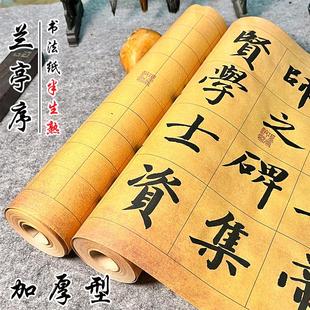 兰亭序
书法纸半生熟
師之碑集
賢學士資
加厚型